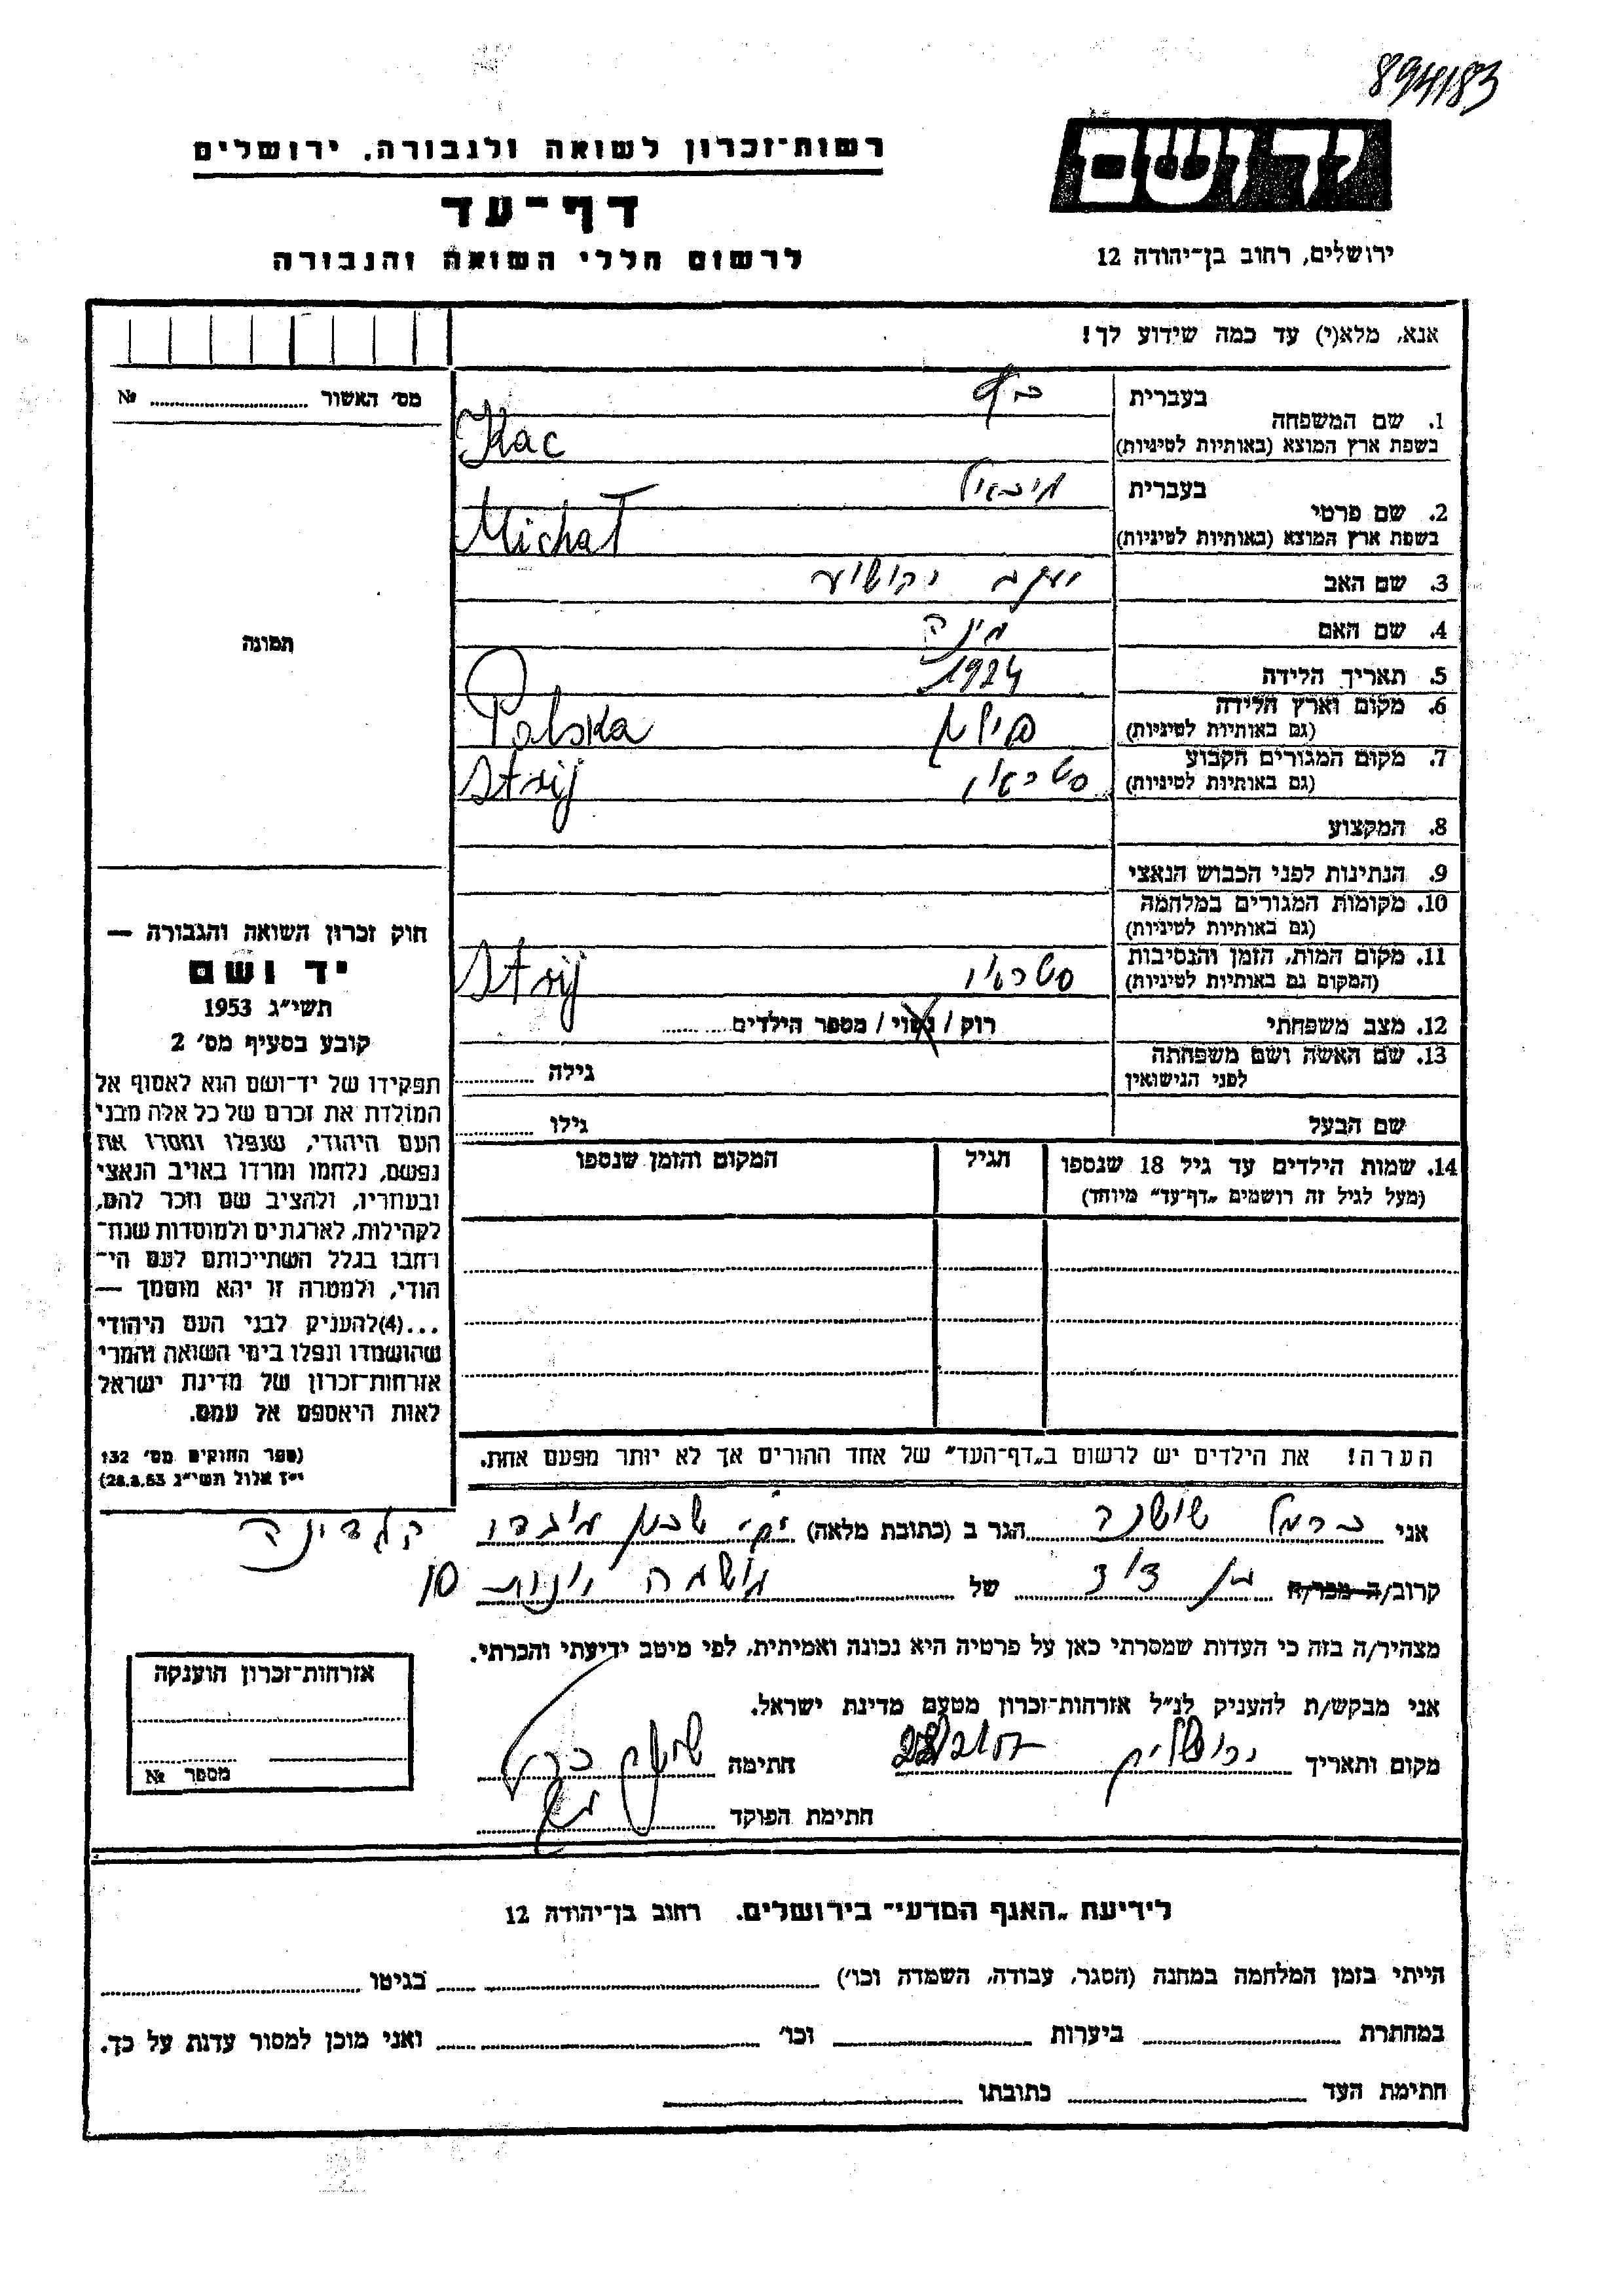 894183
יד ושם
רשות־זכרון לשואה ולגבורה, ירושלים
דף־עד
ירושלים, רחוב בן־יהודה 12
לרשום חללי השואה והגבורה
אנא, מלא(י) עד כמה שידוע לך!
מס׳ האשור №
1. שם המשפחה בעברית כץ
בשפת ארץ המוצא (באותיות לטיניות) Kac
2. שם פרטי בעברית מיכאל
בשפת ארץ המוצא (באותיות לטיניות) Michał
3. שם האב יעקב יהושע
4. שם האם מינה
תמונה
5. תאריך הלידה 1924
6. מקום וארץ הלידה פולין Polska
(גם באותיות לטיניות)
7. מקום המגורים הקבוע Strij
(גם באותיות לטיניות)
8. המקצוע
9. הנתינות לפני הכבוש הנאצי
10. מקומות המגורים במלחמה
(גם באותיות לטיניות)
11. מקום המות, הזמן והנסיבות Strij
(המקום גם באותיות לטיניות)
12. מצב משפחתי רוק / נשוי / מספר הילדים
13. שם האשה ושם משפחתה גילה
לפני הנישואין
שם הבעל גילו
14. שמות הילדים עד גיל 18 שנספו הגיל המקום והזמן שנספו
(מעל לגיל זה רושמים „דף־עד״ מיוחד)
חוק זכרון השואה והגבורה —
יד ושם
תשי״ג 1953
קובע בסעיף מס׳ 2
תפקידו של יד־ושם הוא לאסוף אל
המולדת את זכרם של כל אלה מבני
העם היהודי, שנפלו ומסרו את
נפשם, נלחמו ומרדו באויב הנאצי
ובעוזריו, ולהציב שם וזכר להם,
לקהילות, לארגונים ולמוסדות שנח־
רבו בגלל השתייכותם לעם הי־
הודי, ולמטרה זו יהא מוסמך —
...(4)להעניק לבני העם היהודי
שהושמדו ונפלו בימי השואה והמרי
אזרחות־זכרון של מדינת ישראל
לאות היאספם אל עמם.
(ספר החוקים מס׳ 132
י״ז אלול תשי״ג 28.8.53)
הערה! את הילדים יש לרשום ב„דף־העד״ של אחד ההורים אך לא יותר מפעם אחת.
אני כרמל שושנה הגר ב (כתובת מלאה) שכון מיגדו
קרוב/ה מכר/ה בן דוד של
מצהיר/ה בזה כי העדות שמסרתי כאן על פרטיה היא נכונה ואמיתית, לפי מיטב ידיעתי והכרתי.
אני מבקש/ת להעניק לנ״ל אזרחות־זכרון מטעם מדינת ישראל.
מקום ותאריך ירושלים חתימה
חתימת הפוקד
אזרחות־זכרון הוענקה
מספר №
לידיעת „האגף המדעי״ בירושלים. רחוב בן־יהודה 12
הייתי בזמן המלחמה במחנה (הסגר, עבודה, השמדה וכו׳) בגיטו
במחתרת ביערות וכו׳ ואני מוכן למסור עדות על כך.
חתימת העד כתובתו